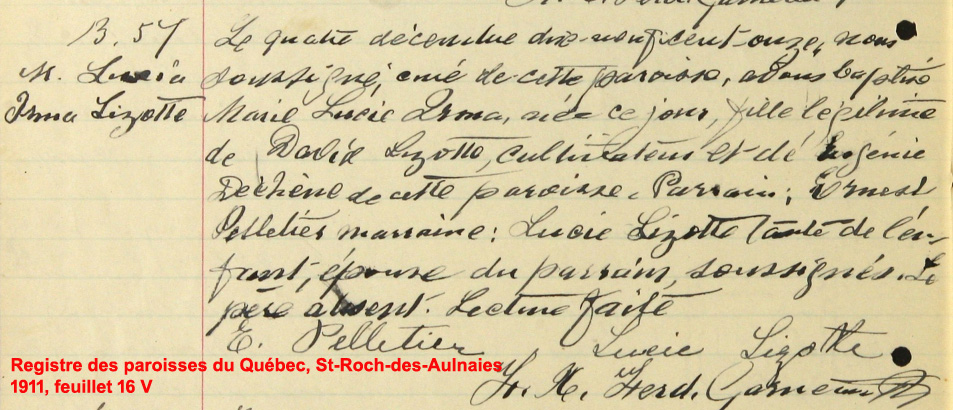 B. 57
M. Lucia
Irma Lizotte
Le quatre décembre dix-neuf cent-onze, nous
soussigné, curé de cette paroisse, avons baptisé
Marie Lucie Irma, née ce jour, fille légitime
de David Lizotte, cultivateur et de Eugénie
Dechène de cette paroisse. Parrain: Ernest
Pelletier marraine: Lucie Lizotte tante de l'en-
fant, épouse du parrain, soussignés. Le
père absent. Lecture faite
E. Pelletier Lucie Lizotte
Ferd. Garneau
Registre des paroisses du Québec, St-Roch-des-Aulnaies
1911, feuillet 16 V